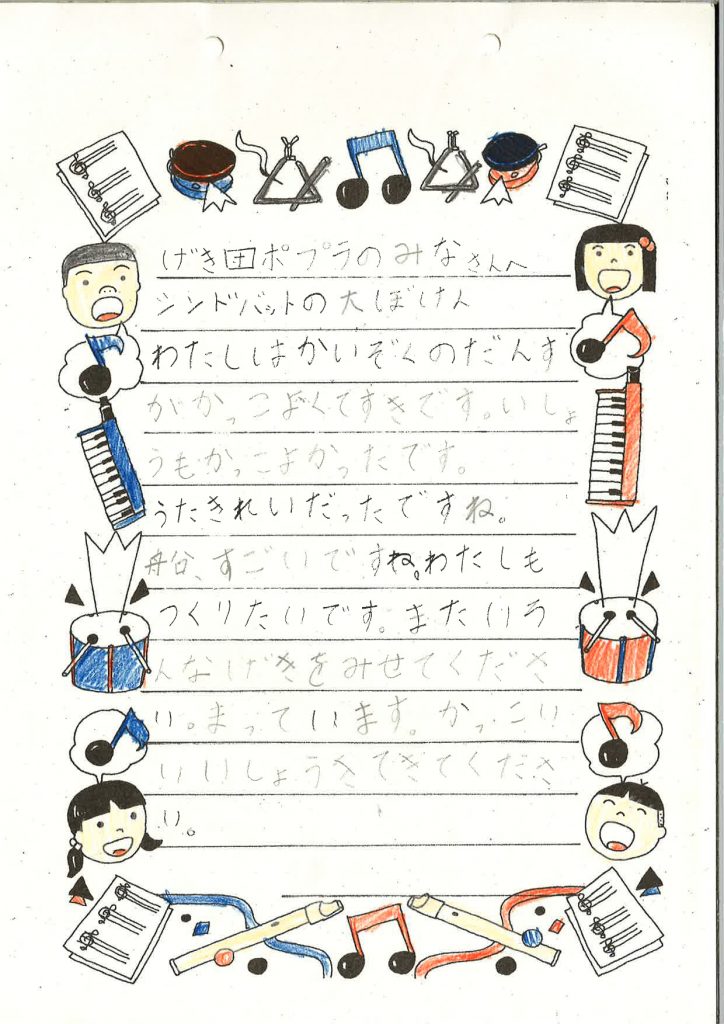 げき田ポプラのみなさんへ
シンドバットの大ぼけん
わたしはかいぞくのだんす
がかっこよくてすきです。いしょ
うもかっこよかったです。
うたきれいだったですね。
船、すごいですね。わたしも
つくりたいです。またいろ
んなげきをみせてくださ
い。まっています。かっこい
いいしょうきてきてくださ
い。